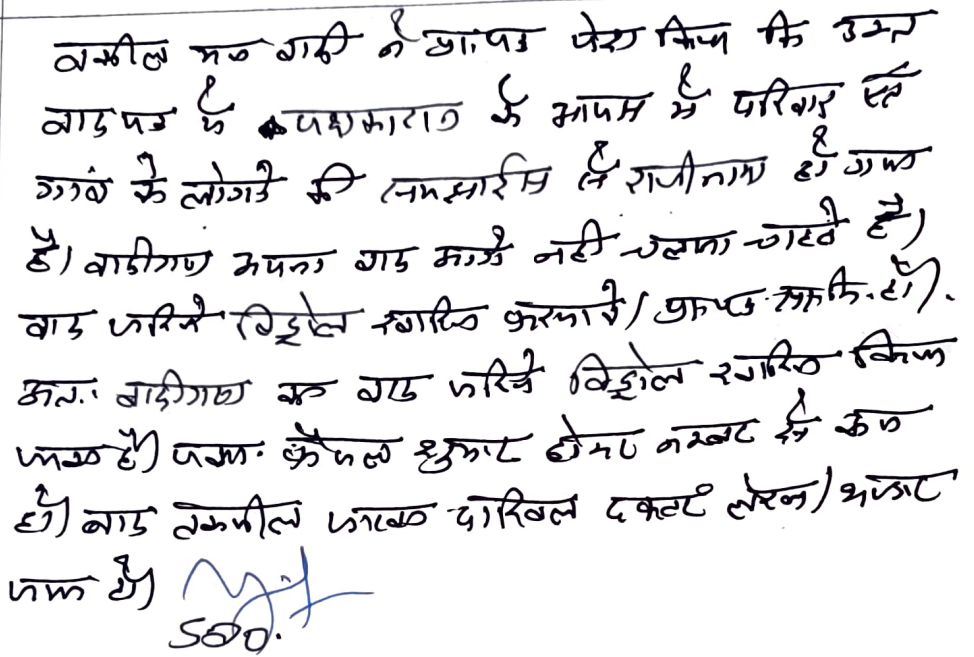 वकील मय वादी ने प्रा.पत्र पेश किया कि उक्त
वाद पत्र में पक्षकारान के आपस में परिवार एवं
गांव के लोगो की समझाईस से राजीनामा हो गया
है। वादीगण अपना वाद आगे नही चलाना चाहते है।
वाद जरिये विड्रोल खारिज करमावे। प्रा.पत्र शा.मि. हो।
अतः वादीगण का वाद जरिये विड्रोल खारिज किया
जाता है। पत्रा. फैसल शुमार होकर नम्बर से कम
हो। बाद तकमील जाब्ता दाखिल दफ्तर
जावे हो।
SDO.